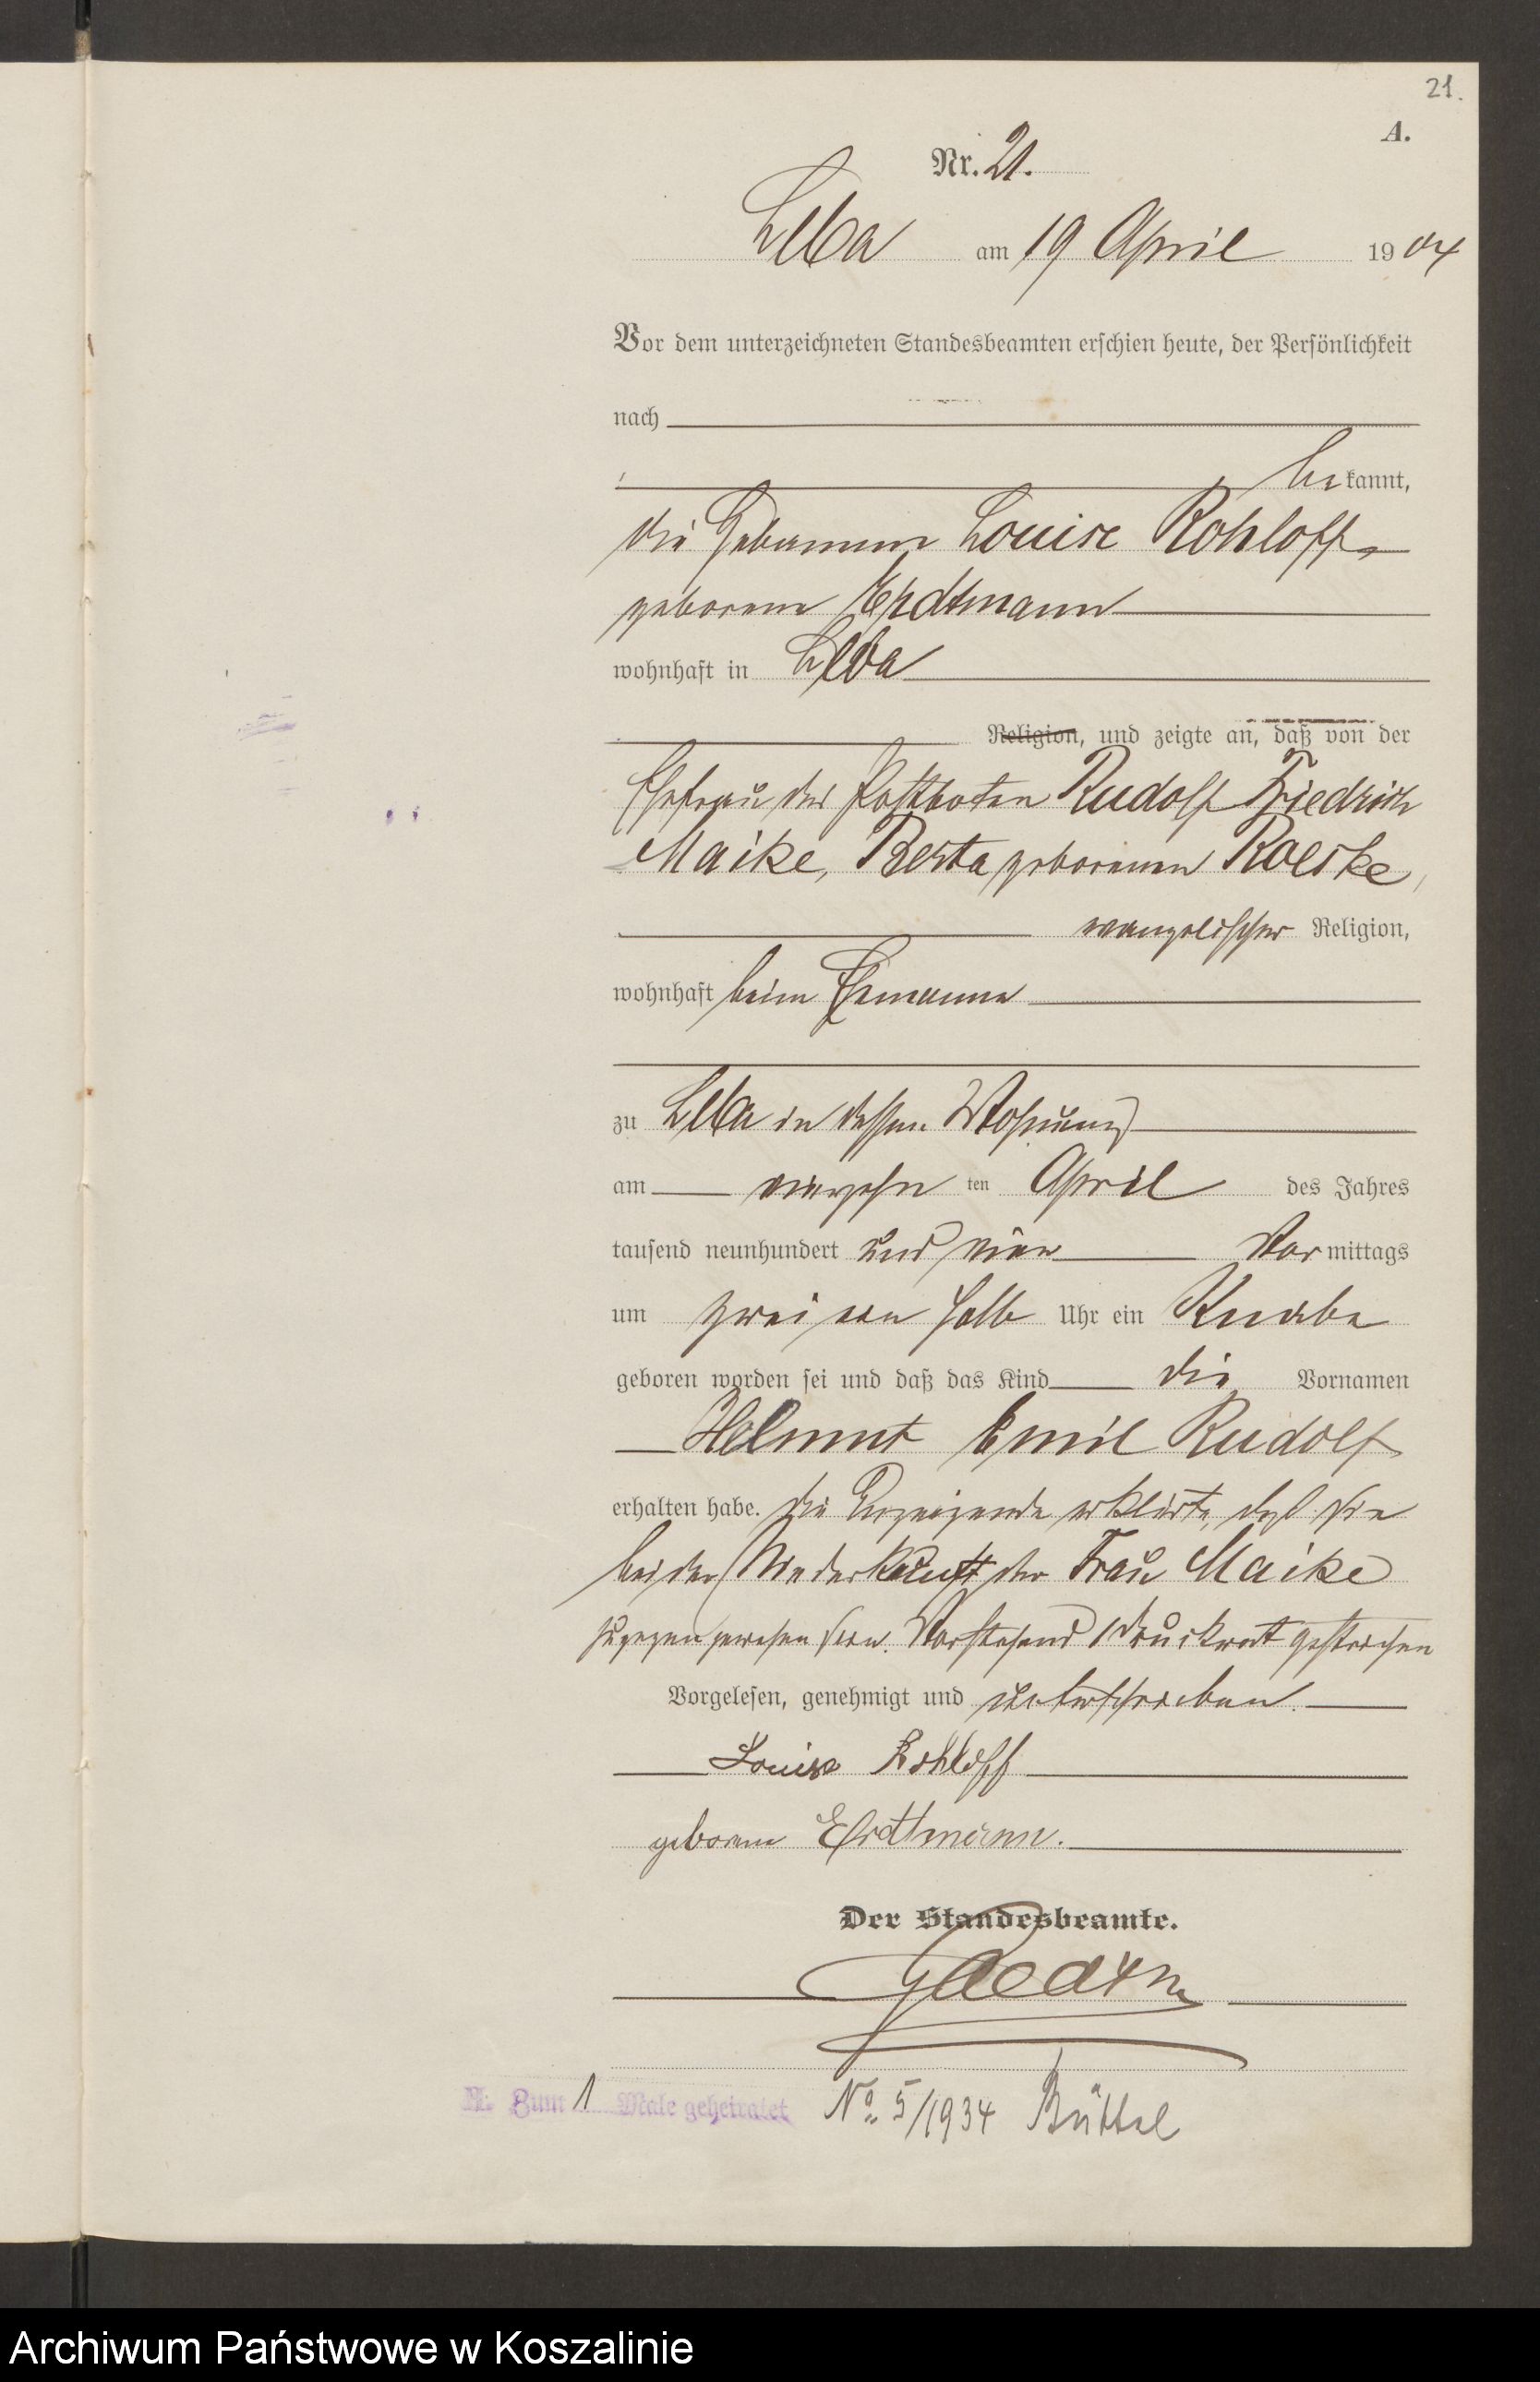 21.
A.
Nr. 21.
Leba am 19 April 1904
Vor dem unterzeichneten Standesbeamten erschien heute, der Persönlichkeit
nach
bekannt,
die Hebamme Louise Rohloff
geborene Erdtmann
wohnhaft in Leba
Religion, und zeigte an, daß von der
Ehefrau des Postboten Rudolf Friedrich
Maike, Berta geborenen Roeske,
evangelischer Religion,
wohnhaft beim Ehemanne
zu Leba in dessen Wohnung
am vierzehn ten April des Jahres
tausend neunhundert und vier Vormittags
um zwei ein halb Uhr ein Knabe
geboren worden sei und daß das Kind die Vornamen
Helmut Emil Rudolf
erhalten habe. Die Anzeigende erklärte, daß sie
bei der Niederkunft der Frau Maike
zugegen gewesen sei. Vorstehend 1 Druckwort gestrichen
Vorgelesen, genehmigt und unterschrieben.
Louise Rohloff
geborene Erdtmann.
Der Standesbeamte.
Zum 1 Male geheiratet No 5/1934 Büttel
Archiwum Państwowe w Koszalinie